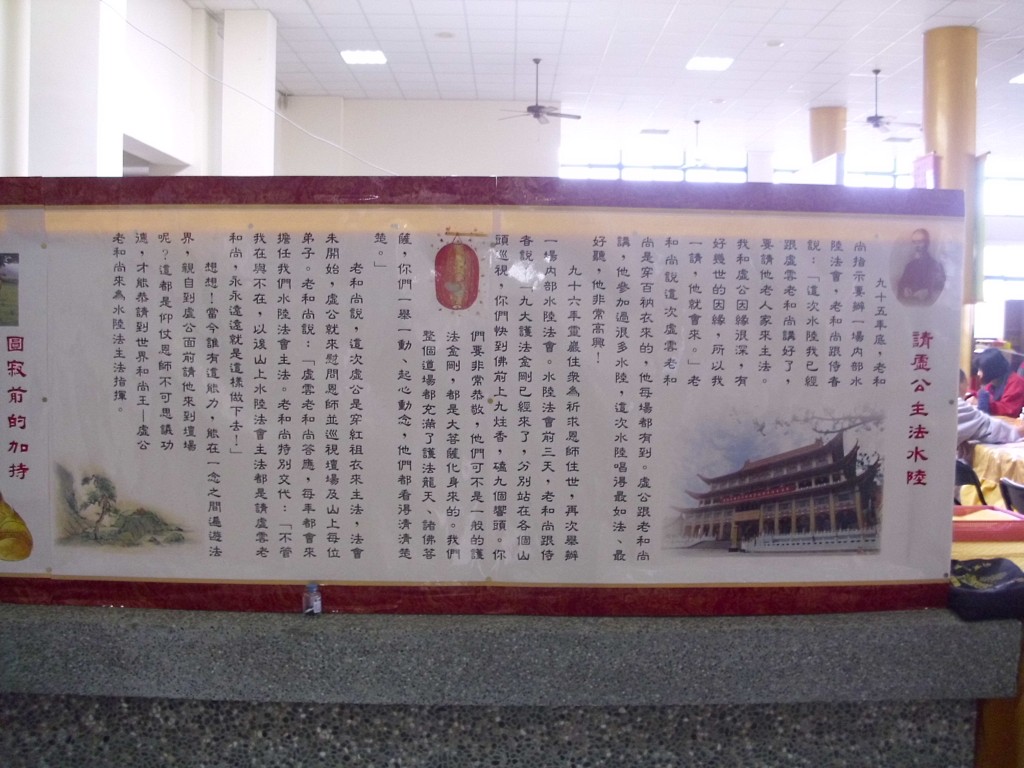 請虛公主法水陸
九十五年底，老和
尚指示要辦一場內部水
陸法會，老和尚跟侍者
說：「這次水陸我已經
跟虛雲老和尚講好了，
要請他老人家來主法。
我和虛公因緣很深，有
好幾世的因緣，所以我
一請，他就會來。」老
和尚說這次虛雲老和
尚是穿百衲衣來的，他每場都有到。虛公跟老和尚
講，他參加過很多水陸，這次水陸唱得最如法、最
好聽，他非常高興！
九十六年靈巖住眾為祈求恩師住世，再次舉辦
一場內部水陸法會。水陸法會前三天，老和尚跟侍
者說：「九大護法金剛已經來了，分別站在各個山
頭巡視，你們快到佛前上九炷香，磕九個響頭。你
們要非常恭敬，他們可不是一般的護
法金剛，都是大菩薩化身來的。我們
整個道場都充滿了護法龍天、諸佛菩
薩，你們一舉一動、起心動念，他們都看得清清楚
楚。」
老和尚說，這次虛公是穿紅祖衣來主法，法會
未開始，虛公就來慰問恩師並巡視壇場及山上每位
弟子。老和尚說：「虛雲老和尚答應，每年都會來
擔任我們水陸法會主法。老和尚特別交代：「不管
我在與不在，以後山上水陸法會主法都是請虛雲老
和尚，永永遠遠就是這樣做下去！」
想想！當今誰有這能力，能在一念之間遍遊法
界，親自到虛公面前請他來到壇場
呢？這都是仰仗恩師不可思議功
德，才能恭請到世界和尚王—虛公
老和尚來為水陸法會主法指揮。
圓寂前的加持